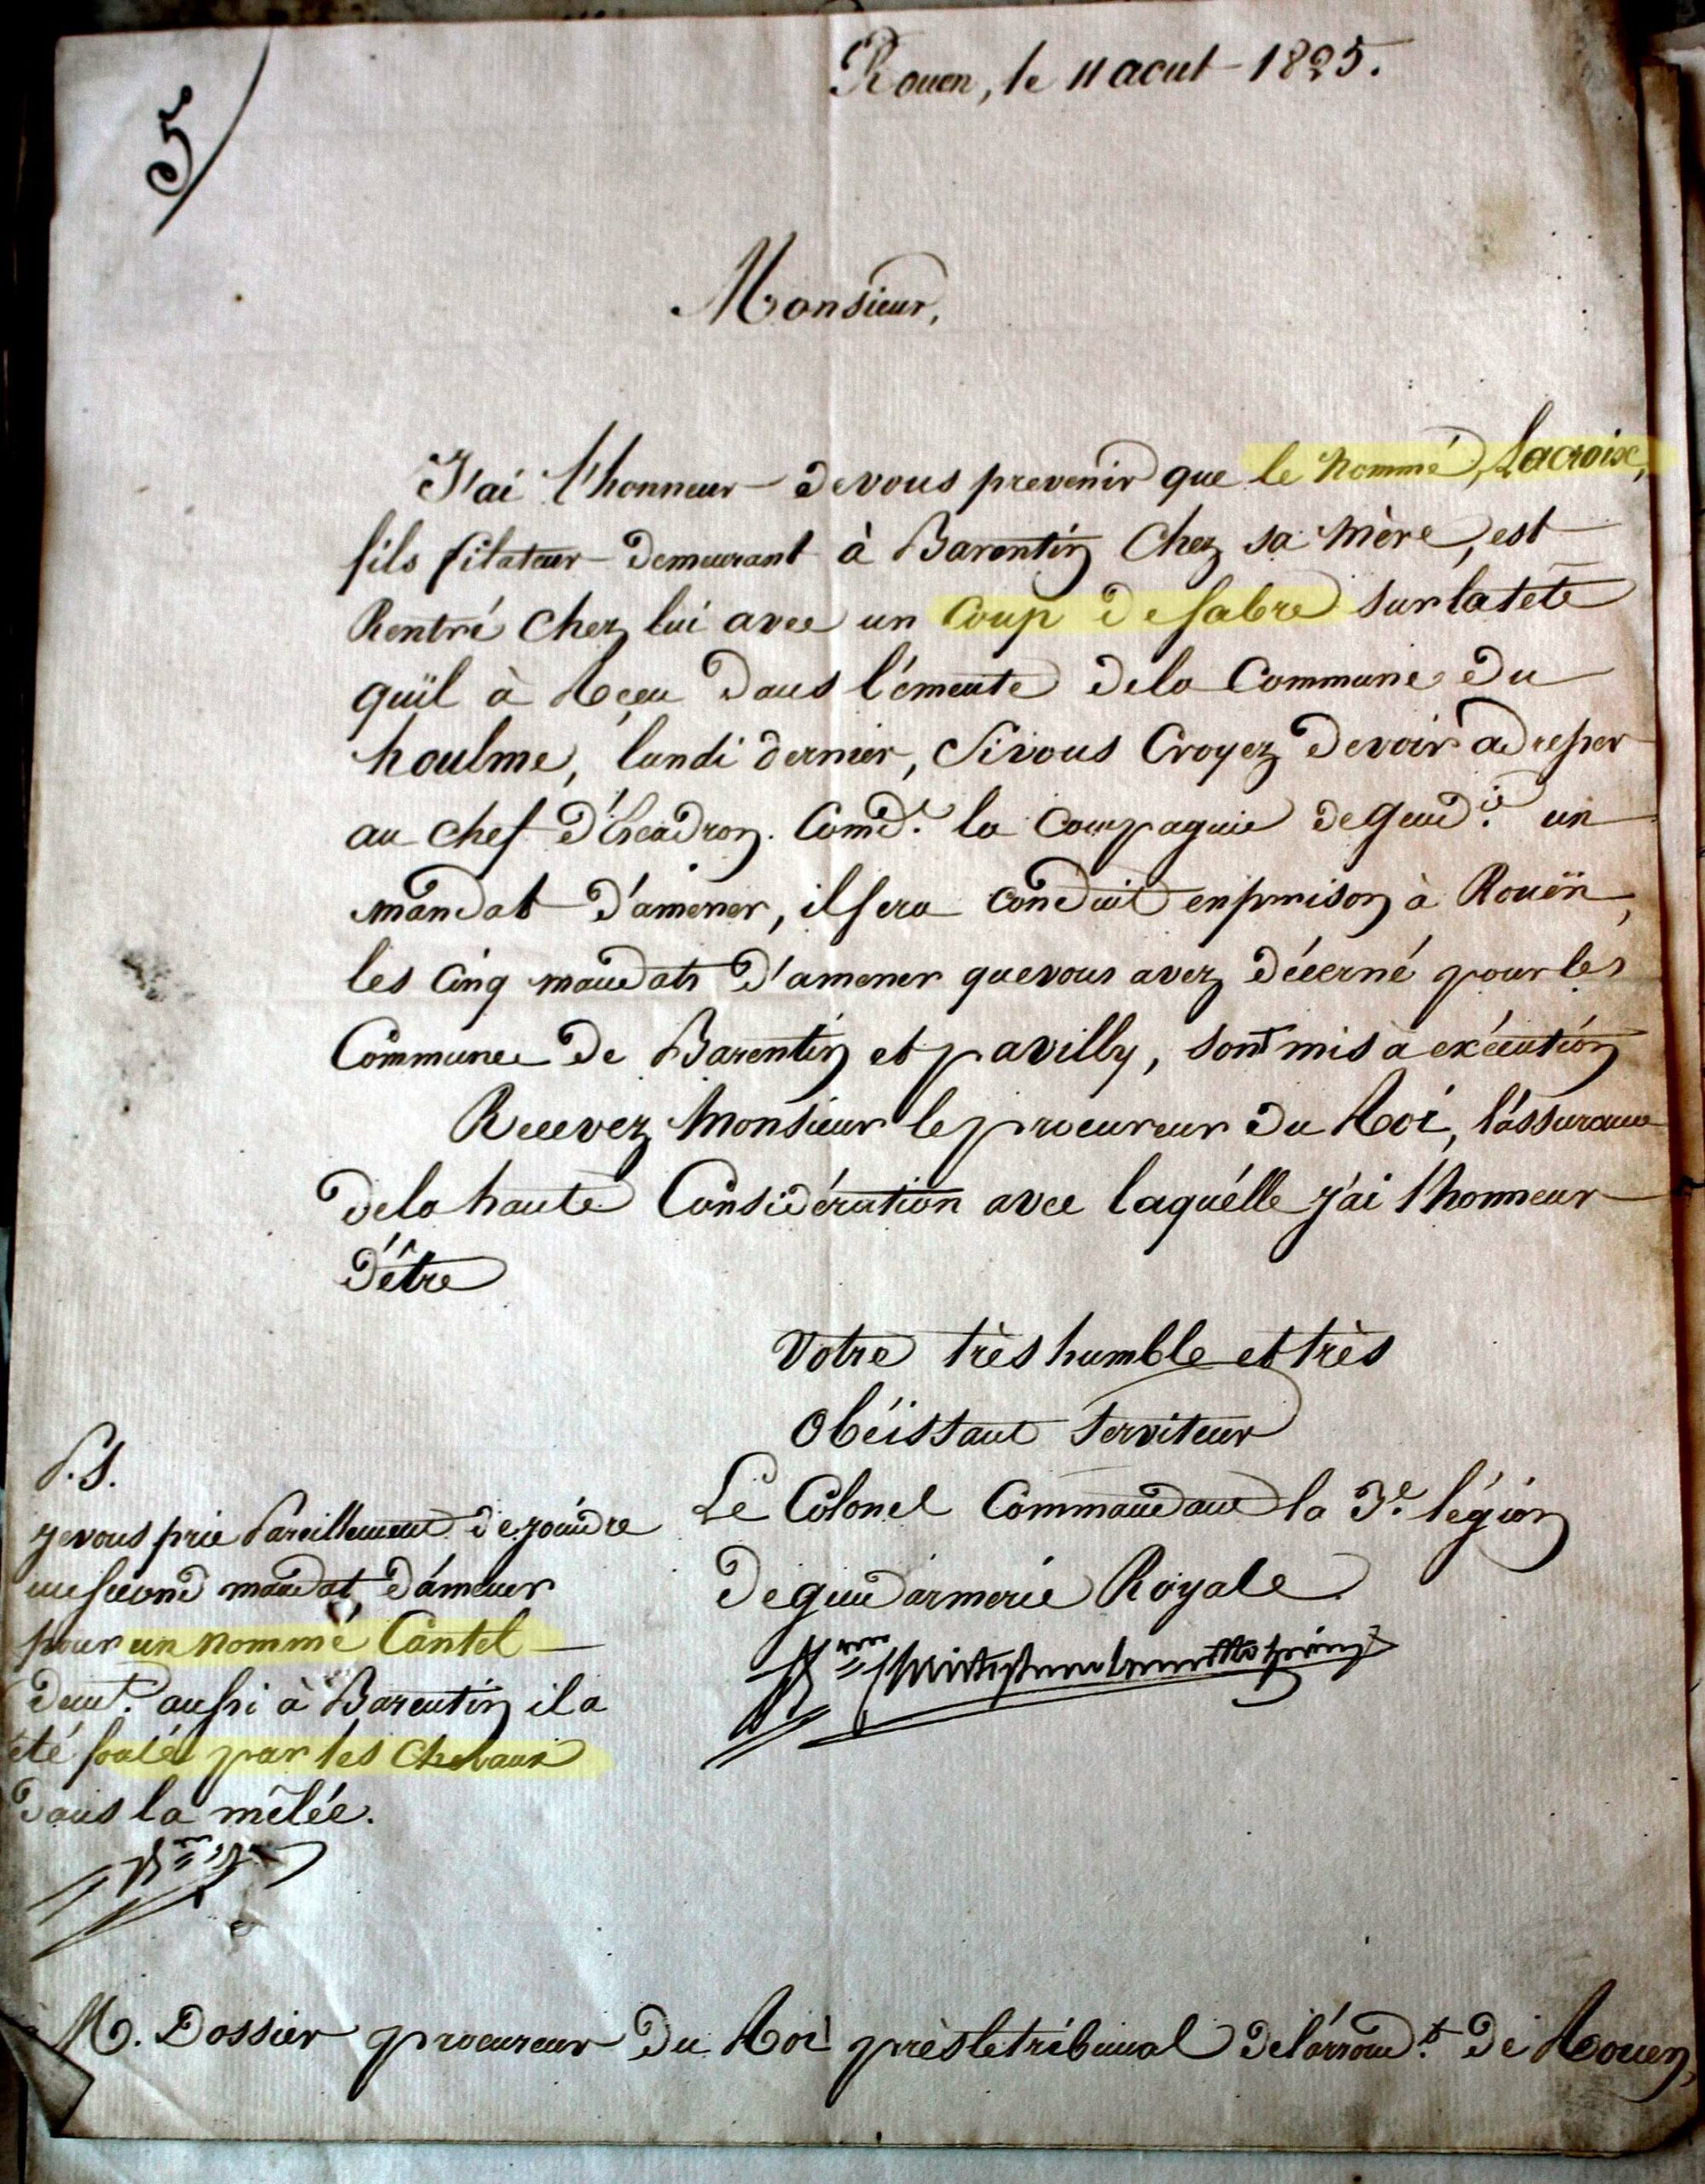 5
Rouen, le 11 aout 1825.
Monsieur,
J'ai l'honneur de vous prevenir que le nommé Lacroix,
fils filateur demeurant à Barentin Chez sa mère, est
Rentré Chez lui avec un Coup de Sabre sur la tete
quïl à Reçeu dans l'émeute de la Commune du
houlme, lundi dernier, Si vous Croyez devoir adresser
au chef d'Escadron. Comd.t la Compagnie de Gend.ie un
mandat d'amener, il sera Conduit en prison à Rouën,
les Cinq mandats d'amener que vous avez décerné pour les
Commune de Barentin et pavilly, sont mis à exécution
Recevez Monsieur le procureur du Roi, l'assurance
de la haute Considération avec laquélle j'ai l'honneur
d'être
Votre très humble et très
Obéissant Serviteur
Le Colonel Commandant la 3.e légion
de gendarmerie Royale
P.S.
je vous prie Pareillement de joindre
un second mandat d'amener
pour un nommé Cantel
dem.t aussi à Barentin il a
été foulé par les Chevaux
dans la mêlée.
M. Dossier procureur du Roi près le tribunal de l'arrond.t de Rouen,